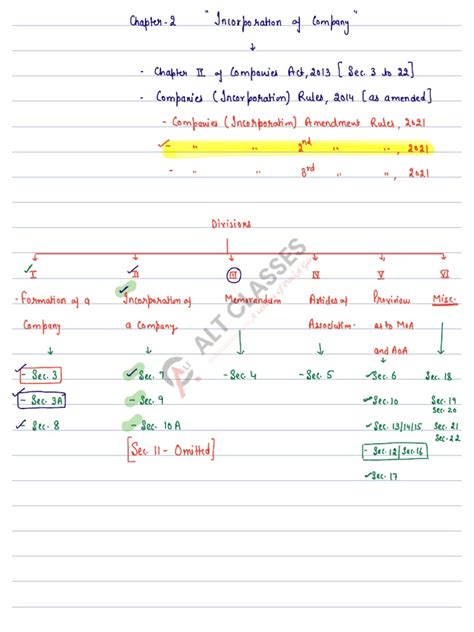 Chapter-2 "Incorporation of Company"
- Chapter II of Companies Act, 2013 [Sec. 3 to 22]
- Companies (Incorporation) Rules, 2014 [as amended]
- Companies (Incorporation) Amendment Rules, 2021
- " " 2nd " ", 2021
- " " 3rd " ", 2021
Divisions
I II III IV V VI
- Formation of a Incorporation of Memorandum Articles of Proview Misc.
Company a Company Association. as to MoA
and AoA
- Sec. 3 - Sec. 7 - Sec. 4 - Sec. 5 - Sec. 6 Sec. 18
- Sec. 3A - Sec. 9 Sec. 10 Sec. 19
Sec. 20
- Sec. 8 - Sec. 10A - Sec. 13/14/15 Sec. 21
Sec. 22
[Sec. 11 - Omitted] - Sec. 12/Sec. 16
Sec. 17
ALT CLASSES